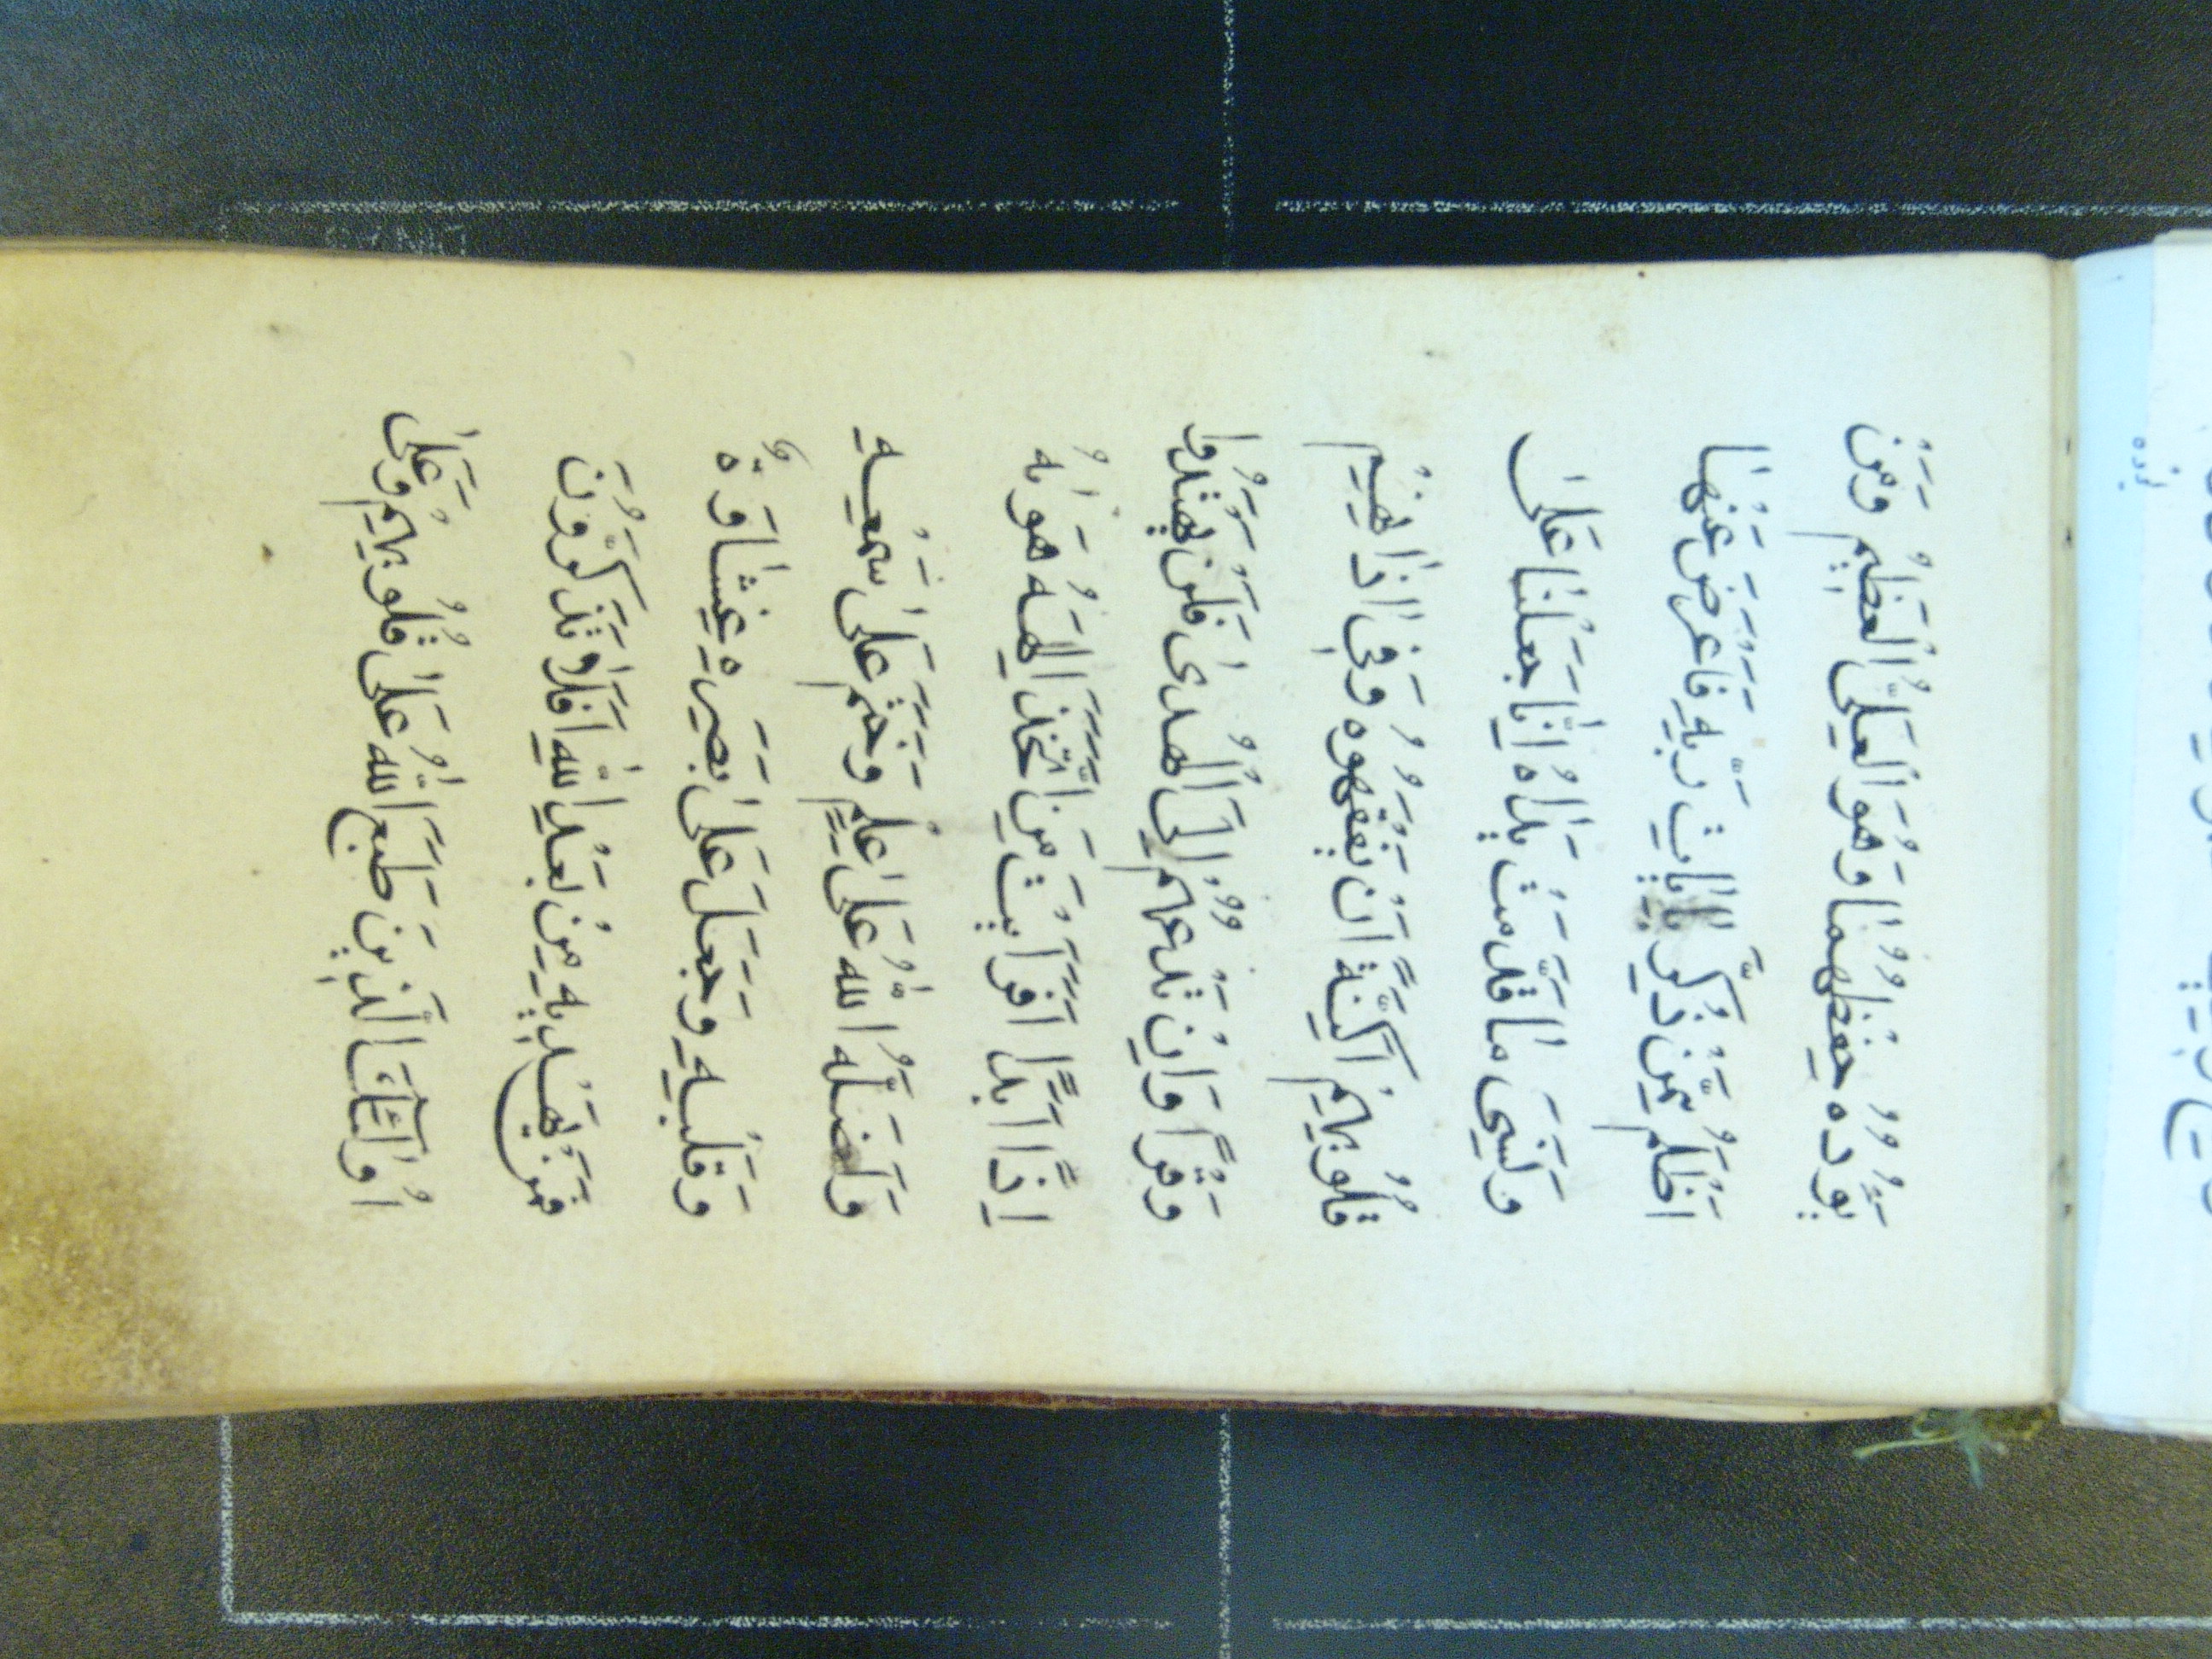 يَؤُدُهُ حِفْظُهُمَا وَهُوَ الْعَلِىُّ الْعَظِيمُ وَمَنْ
اَظْلَمُ مِمَّنْ ذُكِّرَ بِاٰيٰتِ رَبِّهِ فَاَعْرَضَ عَنْهَا
وَنَسِىَ مَا قَدَّمَتْ يَدَاهُ اِنَّا جَعَلْنَا عَلٰى
قُلُوبِهِمْ اَكِنَّةً اَنْ يَفْقَهُوهُ وَفِى اٰذَانِهِمْ
وَقْرًا وَاِنْ تَدْعُهُمْ اِلَى الْهُدٰى فَلَنْ يَهْتَدُوا
اِذًا اَبَدًا اَفَرَاَيْتَ مَنِ اتَّخَذَ اِلٰهَهُ هَوٰيهُ
وَاَضَلَّهُ اللّٰهُ عَلٰى عِلْمٍ وَخَتَمَ عَلٰى سَمْعِهِ
وَقَلْبِهِ وَجَعَلَ عَلٰى بَصَرِهِ غِشَاوَةً
فَمَنْ يَهْدِيهِ مِنْ بَعْدِ اللّٰهِ اَفَلَا تَذَكَّرُونَ
اُولٰئِكَ الَّذِينَ طَبَعَ اللّٰهُ عَلٰى قُلُوبِهِمْ وَعَلٰى